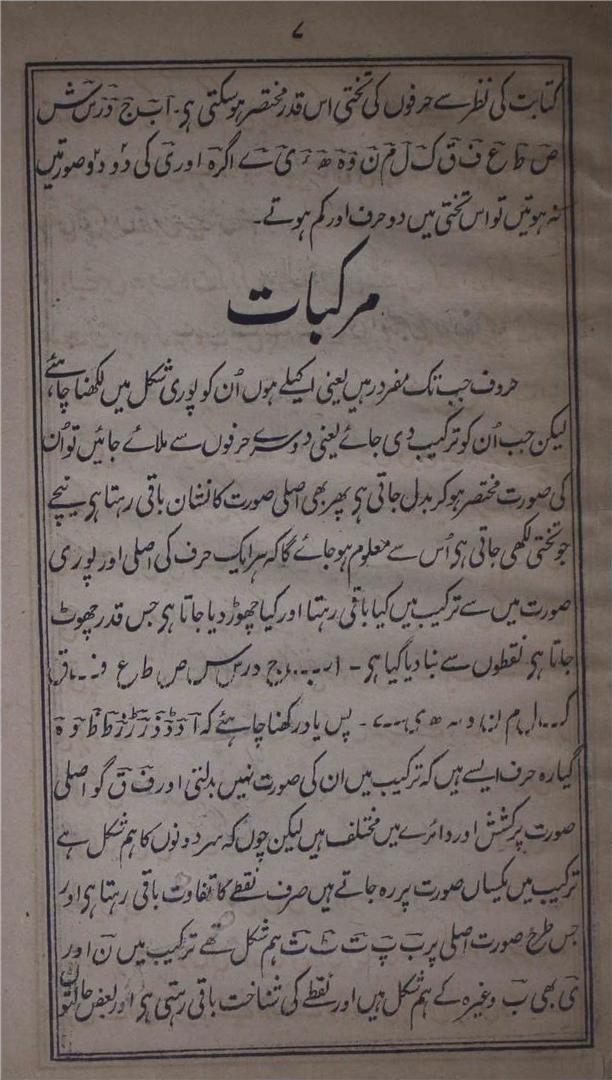 ۷
کتابت کی نظر سے حرفوں کی تختی اس قدر مختصر ہو سکتی ہی۔ ا ب ج د ر س ش
ص ط ع ف ق ک ل م ن و ہ ھ ء ی ے اگر ہ اور ی کی دو دو صورتیں
نہ ہوتیں تو اس تختی میں دو حرف اور کم ہوتے۔
مرکبات
حروف جب تک مفرد رہیں یعنی اکیلے ہوں اُن کو پوری شکل میں لکھنا چاہئے
لیکن جب اُن کو ترکیب دی جائے یعنی دوسرے حرفوں سے ملائے جائیں تو اُن
کی صورت مختصر ہو کر بدل جاتی ہی پھر بھی اصلی صورت کا نشان باقی رہتا ہی نیچے
جو تختی لکھی جاتی ہی اُس سے معلوم ہو جائے گا کہ ہر ایک حرف کی اصلی اور پوری
صورت میں سے ترکیب میں کیا باقی رہتا اور کیا چھوڑ دیا جاتا ہی جس قدر چھوٹ
جاتا ہی نقطوں سے بنا دیا گیا ہی -
پس یاد رکھنا چاہئے کہ ا د ڈ ذ ر ڑ ز ط ظ و ہ
گیارہ حرف ایسے ہیں کہ ترکیب میں ان کی صورت نہیں بدلتی اور ف ق گو اصلی
صورت پر کشش اور دائرے میں مختلف ہیں لیکن چوں کہ سر دونوں کا ہم شکل ہے
ترکیب میں یکساں صورت پر رہ جاتے ہیں صرف نقطے کا تفاوت باقی رہتا ہی اور
جس طرح صورت اصلی پر ب پ ت ٹ ث ہم شکل تھے ترکیب میں ن اور
ی بھی ب وغیرہ کے ہم شکل ہیں اور نقطے کی شناخت باقی رہتی ہی اور بعض حالتوں